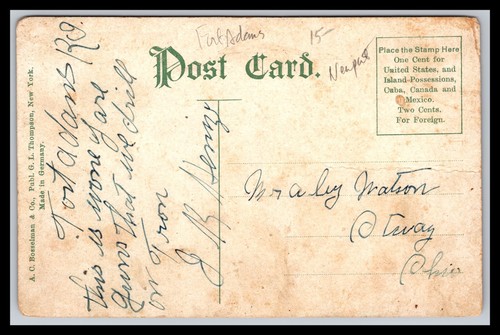 Fort Adams
15-
Newport
Post Card.
Place the Stamp Here
One Cent for
United States, and
Island-Possessions,
Cuba, Canada and
Mexico.
Two Cents.
For Foreign.
A. C. Bosselman & Co., Publ. G. L. Thompson, New York.
Made in Germany.
Fort adams RI.
this is wone of are
guns that we drill
on From
J
Watson
Otway
Ohio